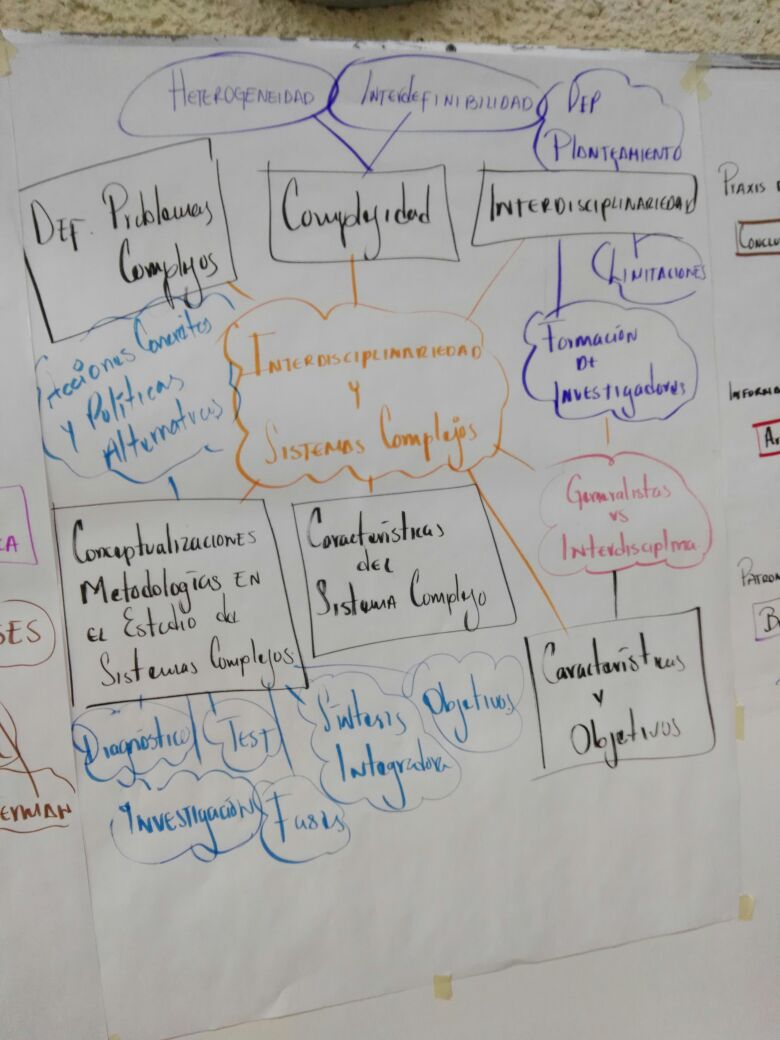 HETEROGENEIDAD
INTERDEFINIBILIDAD
DEF
PLANTEAMIENTO
DEF. Problemas
Complejos
Complejidad
INTERDISCIPLINARIEDAD
LIMITACIONES
Acciones Concretas
y Políticas
Alternativas
INTERDISCIPLINARIEDAD
Y
SISTEMAS Complejos
Formación
DE
INVESTIGADORES
Generalistas
vs
Interdisciplina
Conceptualizaciones
Metodologías EN
EL Estudio del
Sistemas Complejos
Características
DEL
SISTEMA Complejo
Características
Y
Objetivos
Diagnóstico
TEST
INVESTIGACIÓN
Fases
Síntesis
Integradora
Objetivos
PRAXIS